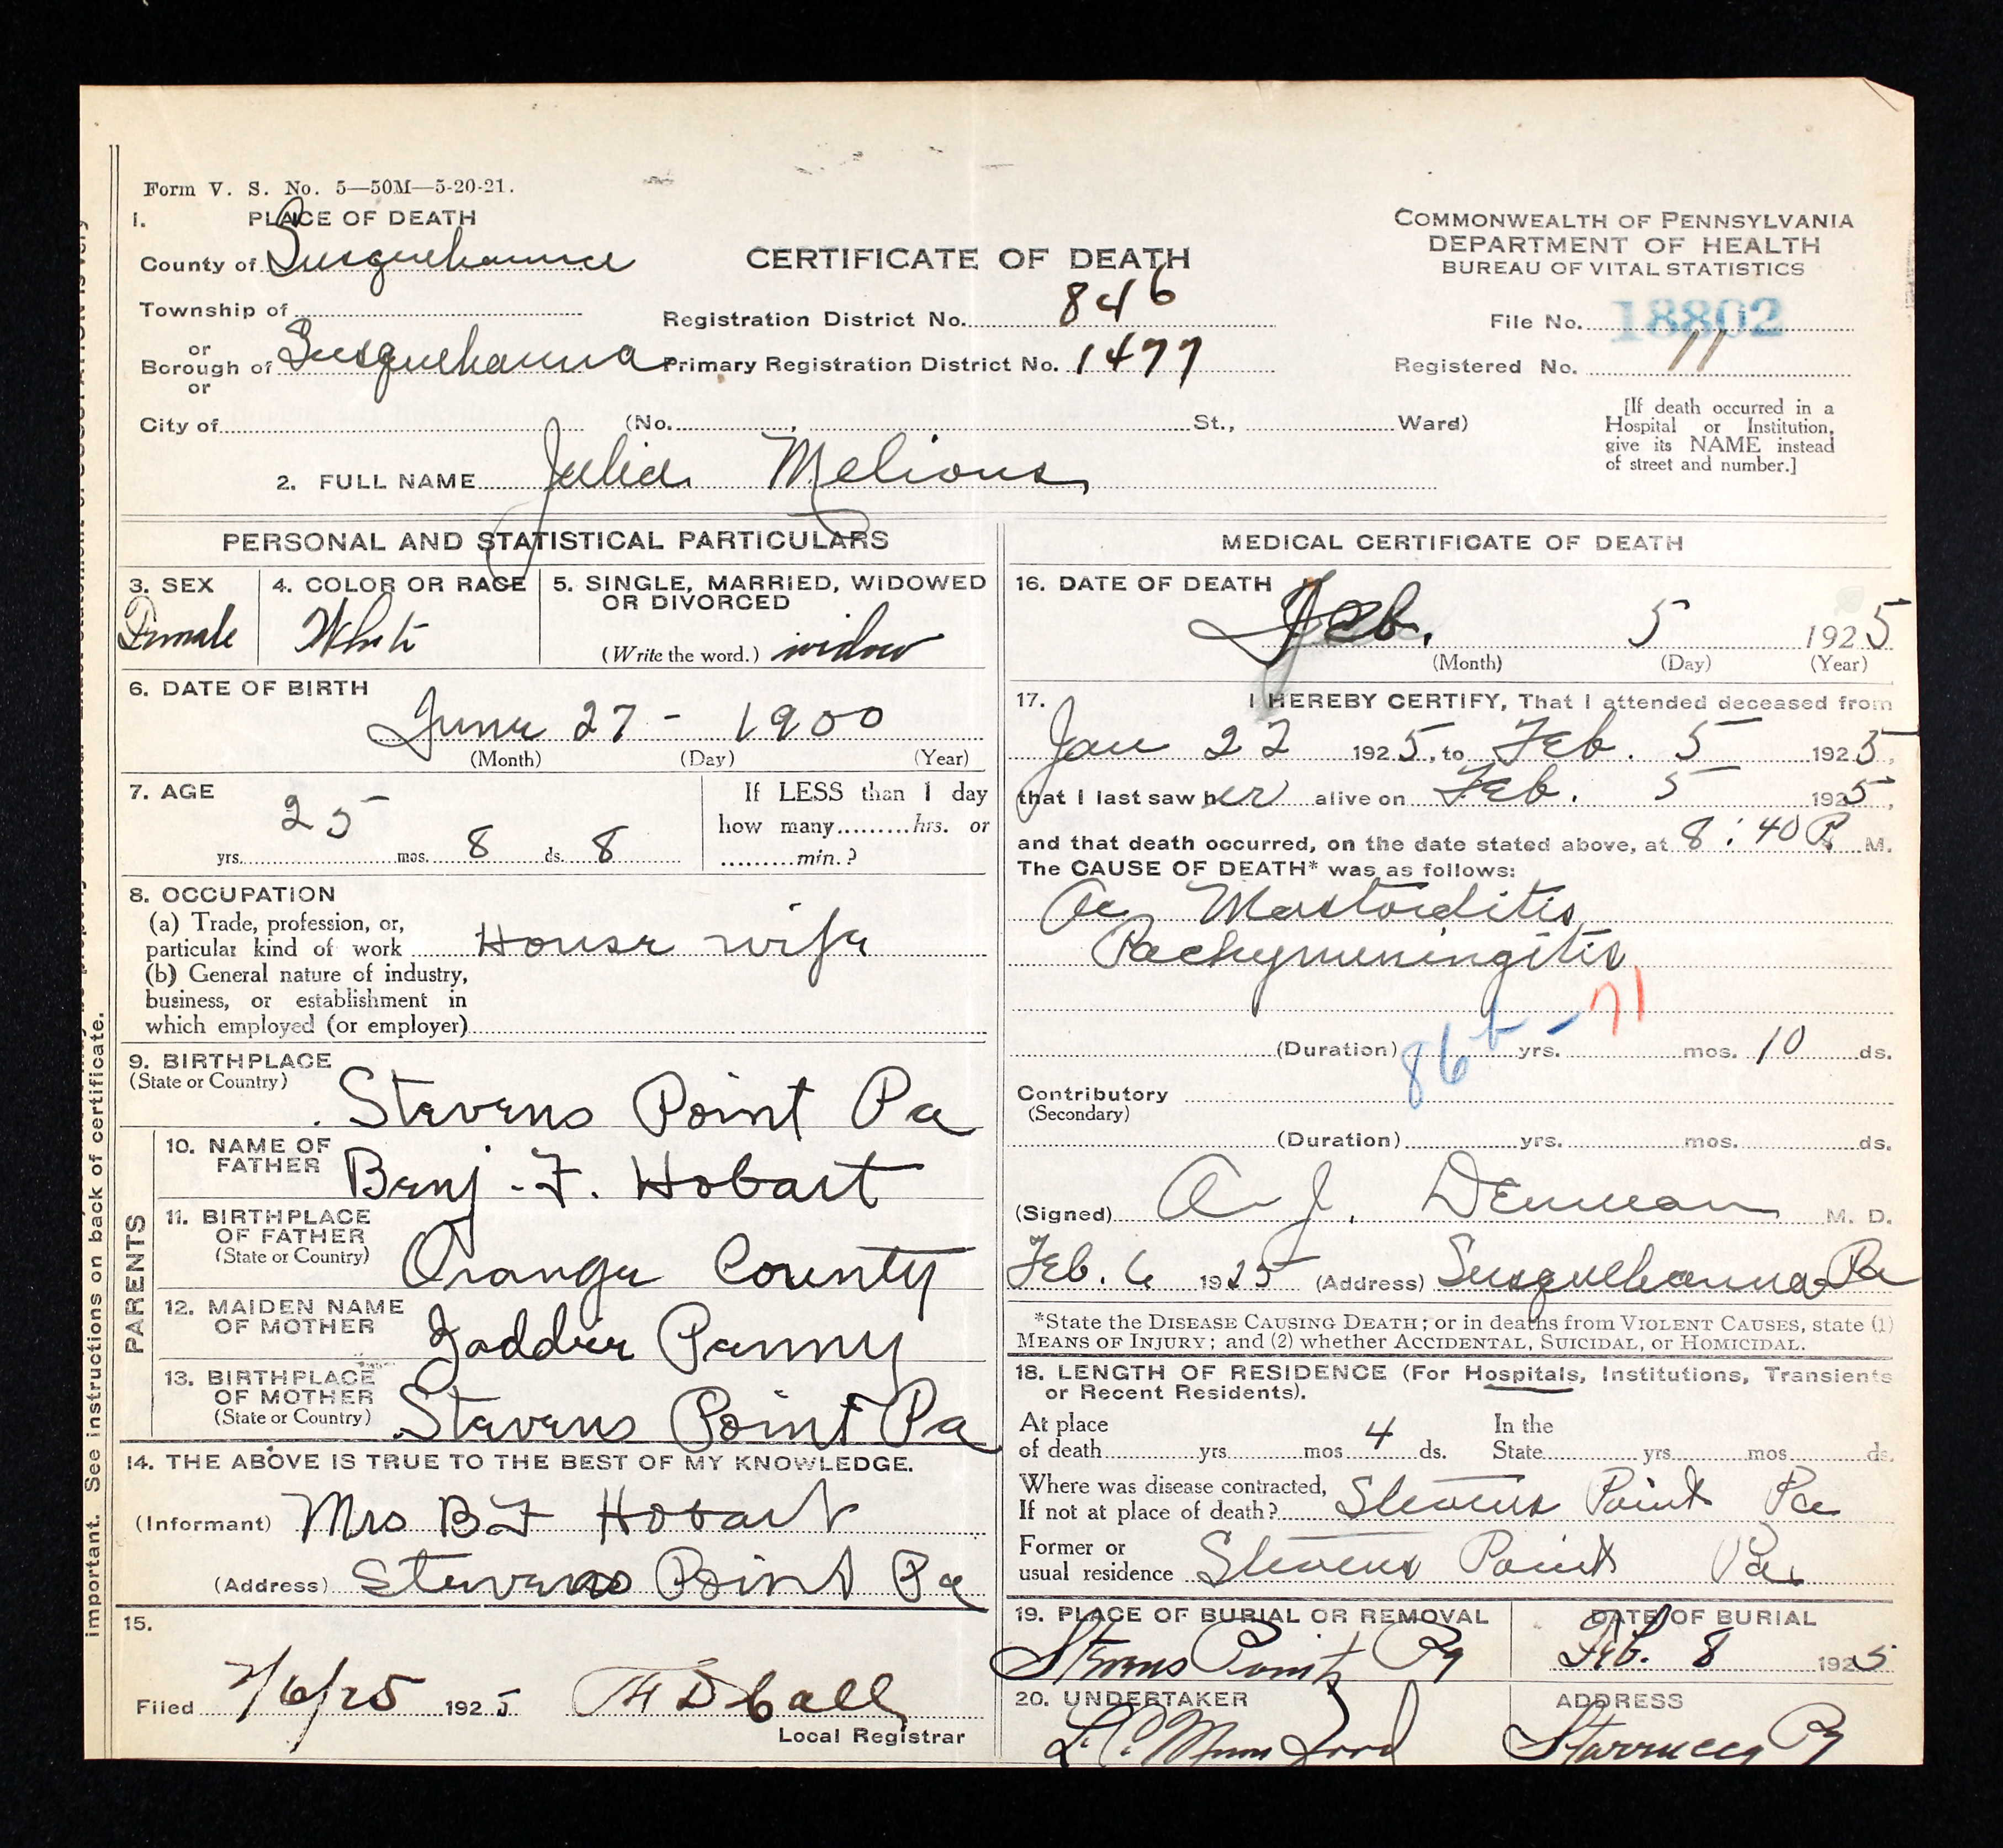 Form V. S. No. 5—50M—5-20-21.
1. PLACE OF DEATH
County of Susquehanna
Township of
or
Borough of Susquehanna
or
City of (No. , St., Ward)
CERTIFICATE OF DEATH
Registration District No. 846
Primary Registration District No. 1477
COMMONWEALTH OF PENNSYLVANIA
DEPARTMENT OF HEALTH
BUREAU OF VITAL STATISTICS
File No. 18802
Registered No. 11
[If death occurred in a
Hospital or Institution,
give its NAME instead
of street and number.]
2. FULL NAME Julia Melious
PERSONAL AND STATISTICAL PARTICULARS
3. SEX
Female
4. COLOR OR RACE
White
5. SINGLE, MARRIED, WIDOWED
OR DIVORCED
(Write the word.) widow
6. DATE OF BIRTH
June 27 - 1900
(Month) (Day) (Year)
7. AGE
25 yrs. 8 mos. 8 ds.
If LESS than 1 day
how many hrs. or
min.?
8. OCCUPATION
(a) Trade, profession, or,
particular kind of work House wife
(b) General nature of industry,
business, or establishment in
which employed (or employer)
9. BIRTHPLACE
(State or Country)
Stevens Point Pa
PARENTS
10. NAME OF
FATHER Benj. F. Hobart
11. BIRTHPLACE
OF FATHER
(State or Country) Orange County
12. MAIDEN NAME
OF MOTHER Penny
13. BIRTHPLACE
OF MOTHER
(State or Country) Stevens Point Pa
14. THE ABOVE IS TRUE TO THE BEST OF MY KNOWLEDGE.
(Informant) Mrs B F Hobart
(Address) Stevens Point Pa
15.
Filed 2/6/25 1925 Call
Local Registrar
MEDICAL CERTIFICATE OF DEATH
16. DATE OF DEATH
Feb. 5 1925
(Month) (Day) (Year)
17. I HEREBY CERTIFY, That I attended deceased from
Jan 22 1925, to Feb. 5 1925,
that I last saw her alive on Feb. 5 1925,
and that death occurred, on the date stated above, at 8:40 P. M.
The CAUSE OF DEATH* was as follows:
Ac Mastoiditis
Pachymeningitis
86b - 71
(Duration) yrs. mos. 10 ds.
Contributory
(Secondary)
(Duration) yrs. mos. ds.
(Signed) A. J. Denman M. D.
Feb. 6 1925 (Address) Susquehanna Pa
*State the DISEASE CAUSING DEATH; or in deaths from VIOLENT CAUSES, state (1)
MEANS OF INJURY; and (2) whether ACCIDENTAL, SUICIDAL, or HOMICIDAL.
18. LENGTH OF RESIDENCE (For Hospitals, Institutions, Transients
or Recent Residents).
At place
of death yrs. mos. 4 ds.
In the
State yrs. mos. ds.
Where was disease contracted,
If not at place of death? Stevens Point Pa
Former or
usual residence Stevens Point Pa.
19. PLACE OF BURIAL OR REMOVAL
Stevens Point Pa
DATE OF BURIAL
Feb. 8 1925
20. UNDERTAKER
L. C. Mumford
ADDRESS
Starrucca Pa
important. See instructions on back of certificate.